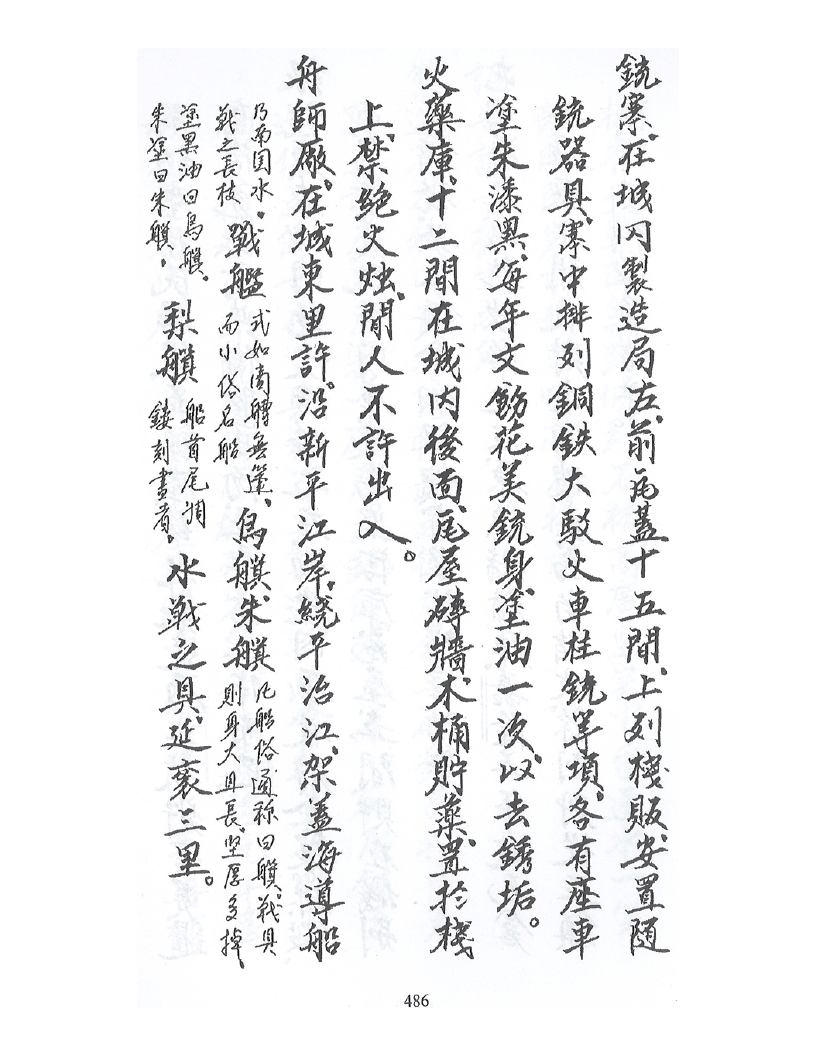 銃寨、在城内製造局左、前瓦蓋十五間、上列棧販、安置随
銃器具、寨中排列銅鉄大駁火車柱銃等項、各有座車
塗朱漆黑、每年文飭花美銃身、塗油一次、以去銹垢。
火藥庫、十二間在城内後面、瓦屋磚牆、木桶貯藥、置於棧
上、禁絶火烛、閒人不許出入。
舟師厰、在城東里許、沿新平江岸、繞平治江、架蓋海導船
乃南囯水
戦之長枝。
戰艦
式如南艚無篷、
而小俗名船
烏艚、朱艚
凡船俗通称曰艚、戦具
則身大且長、坚厚多掉、
塗黑油曰烏艚、
朱塗曰朱艚、
梨艚
船首尾彫
鏤刻畫者。
水戰之具、延袤三里。
486